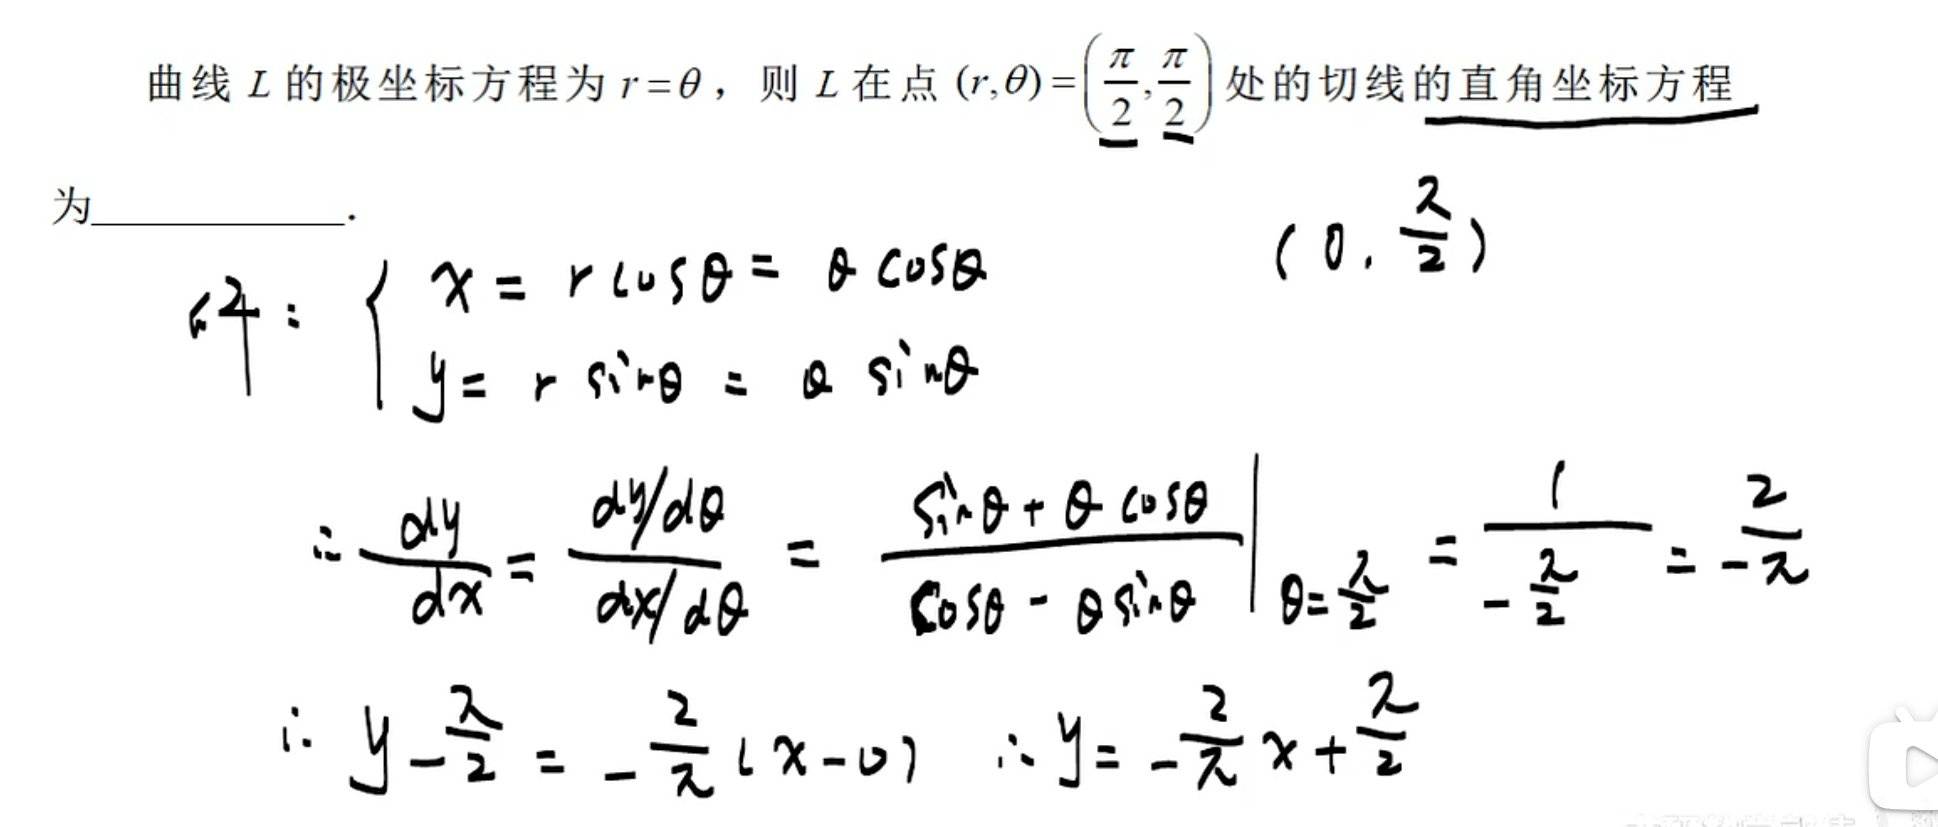 曲线 L 的极坐标方程为 r=θ，则 L 在点 (r,θ)=(π/2,π/2) 处的切线的直角坐标方程
为____________.
(0, π/2)
解: { x = r cosθ = θ cosθ
y = r sinθ = θ sinθ
∴ dy/dx = (dy/dθ)/(dx/dθ) = (sinθ + θ cosθ)/(cosθ - θ sinθ) | θ=π/2 = 1/(-π/2) = -2/π
∴ y - π/2 = -2/π (x-0) ∴ y = -2/π x + π/2